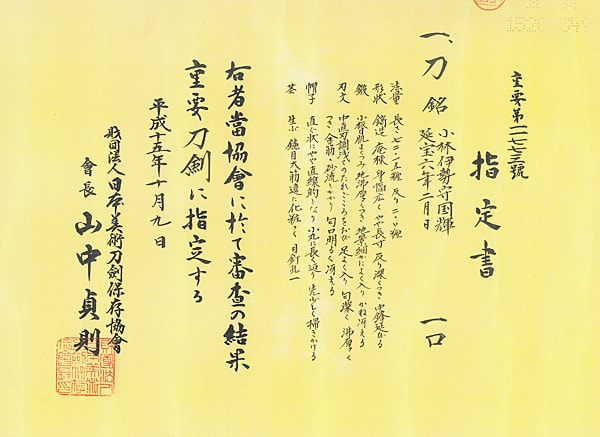 重要第一一七七三號
指定書
一、刀 銘 小林伊勢守国輝 一口
延宝六年二月日
法量 長さ七二・二五糎 反り二・〇糎
形状 鎬造 庵棟 身幅広く やや長寸 反り深くつき 中鋒延びる
鍛 小板目肌つみ 地沸厚くつき 地景細かによく入り かね冴える
刃文 中直刃調 浅くのたれごころをおび 足よく入り 匂深く 沸厚く
つき 金筋・砂流しかかり 匂口明るく冴える
帽子 直ぐ状にやや直線的となり 小丸に長く返り 先少しく掃きかける
茎 生ぶ 鑢目大筋違に化粧つく 目釘孔一
右者當協會に於て審査の結果
重要刀劍に指定する
平成十五年十月九日
財団法人日本美術刀劍保存協會
會長 山中貞則